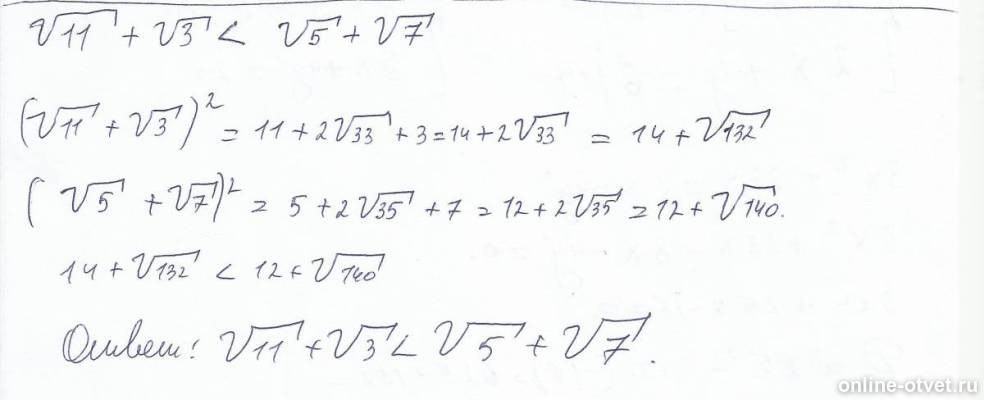 √11 + √3 < √5 + √7
(√11 + √3)² = 11 + 2√33 + 3 = 14 + 2√33 = 14 + √132
(√5 + √7)² = 5 + 2√35 + 7 = 12 + 2√35 = 12 + √140.
14 + √132 < 12 + √140
Ответ: √11 + √3 < √5 + √7.
online-otvet.ru